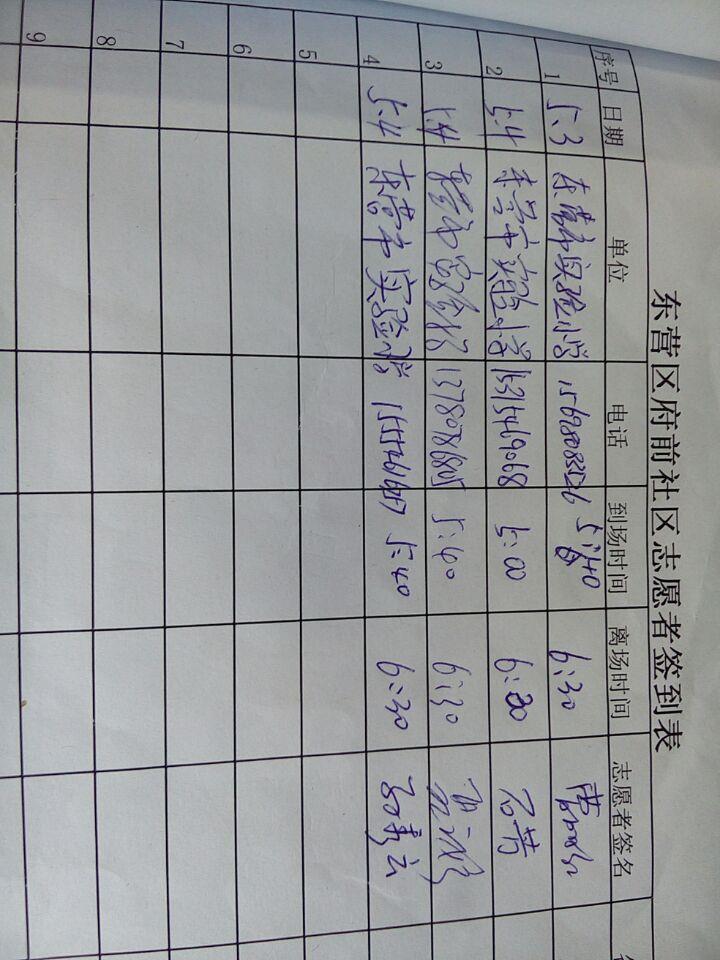 东营区府前社区志愿者签到表
序号 日期 单位 电话 到场时间 离场时间 志愿者签名
1 5.3 东营市实验小学 15698083526 5:40 6:30
2 5.4 东营市实验小学 15315469068 5:00 6:30 石苦
3 5.4 东营市实验小学 13780786805 5:40 6:30
4 5.4 东营市实验小学 5:40 6:30
5
6
7
8
9